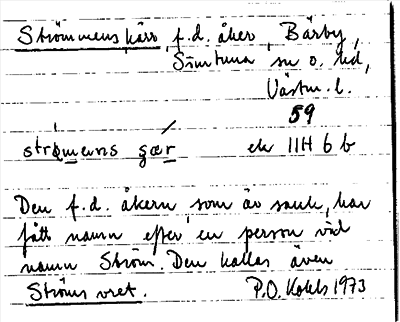 Strömmens kärr, f.d. åker, Bärby,
Simtuna sn o. hd,
Västm. l.
59
strömens gær ek 11H 6b
Den f.d. åkern, som är sank, har
fått namn efter en person vid
namn Ström. Den kallas även
Ströms vret. P.O. Kohls 1973